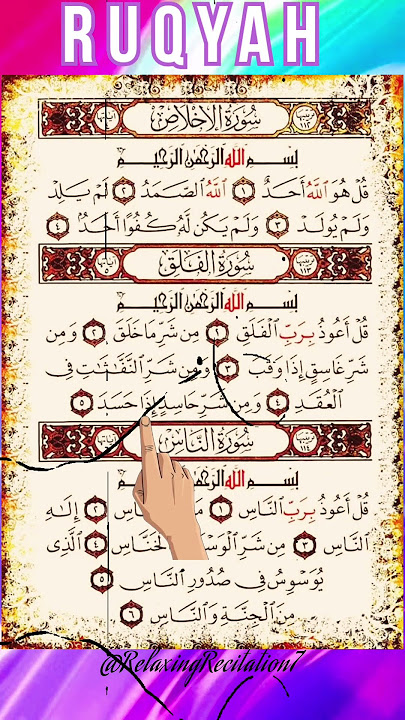 RUQYAH
سُورَةُ الإِخْلَاصِ
بِسْمِ اللهِ الرَّحْمَٰنِ الرَّحِيمِ
قُلْ هُوَ اللَّهُ أَحَدٌ ١ اللَّهُ الصَّمَدُ ٢ لَمْ يَلِدْ
وَلَمْ يُولَدْ ٣ وَلَمْ يَكُن لَّهُ كُفُوًا أَحَدٌ ٤
سُورَةُ الفَلَقِ
بِسْمِ اللهِ الرَّحْمَٰنِ الرَّحِيمِ
قُلْ أَعُوذُ بِرَبِّ الْفَلَقِ ١ مِن شَرِّ مَا خَلَقَ ٢ وَمِن
شَرِّ غَاسِقٍ إِذَا وَقَبَ ٣ وَمِن شَرِّ النَّفَّاثَاتِ فِي
الْعُقَدِ ٤ وَمِن شَرِّ حَاسِدٍ إِذَا حَسَدَ ٥
سُورَةُ النَّاسِ
بِسْمِ اللهِ الرَّحْمَٰنِ الرَّحِيمِ
قُلْ أَعُوذُ بِرَبِّ النَّاسِ ١ النَّاسِ ٢ إِلَٰهِ
النَّاسِ ٣ مِن شَرِّ الْخَنَّاسِ ٤ الَّذِي
يُوَسْوِسُ فِي صُدُورِ النَّاسِ ٥
مِنَ الْجِنَّةِ وَالنَّاسِ ٦
@RelaxingRecitation7